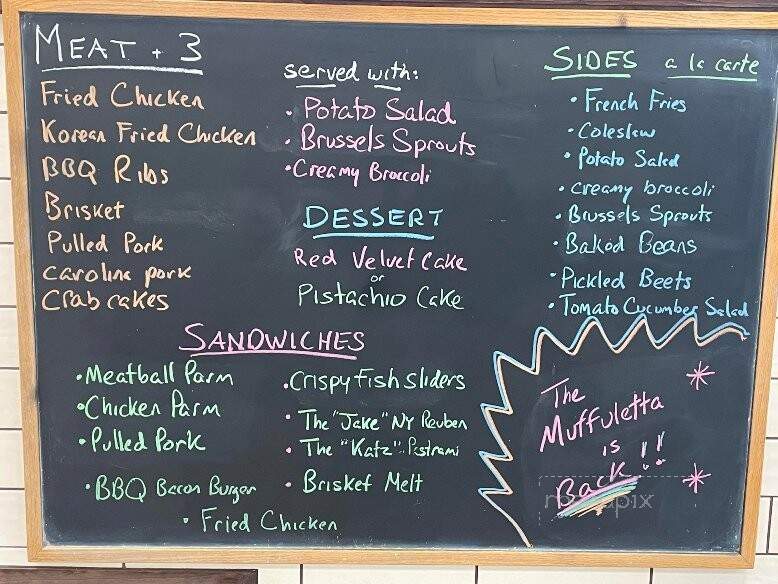 MEAT + 3
Fried Chicken
Korean Fried Chicken
BBQ Ribs
Brisket
Pulled Pork
Carolina pork
Crab cakes
served with:
• Potato Salad
• Brussels Sprouts
• Creamy Broccoli
DESSERT
Red Velvet Cake
or
Pistachio Cake
SIDES a la carte
• French Fries
• Coleslaw
• Potato Salad
• creamy broccoli
• Brussels Sprouts
• Baked Beans
• Pickled Beets
• Tomato Cucumber Salad
SANDWICHES
• Meatball Parm
• Chicken Parm
• Pulled Pork
• BBQ Bacon Burger
• Fried Chicken
• Crispy Fish Sliders
• The "Jake" NY Reuben
• The "Katz" Pastrami
• Brisket Melt
The
Muffuletta
is
Back!!